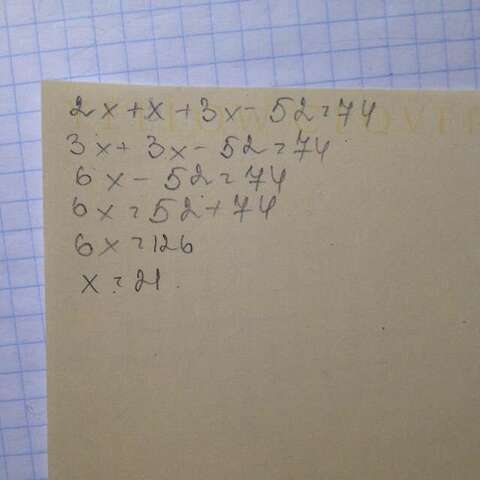 2x+x+3x-52=74
3x+3x-52=74
6x-52=74
6x=52+74
6x=126
x=21